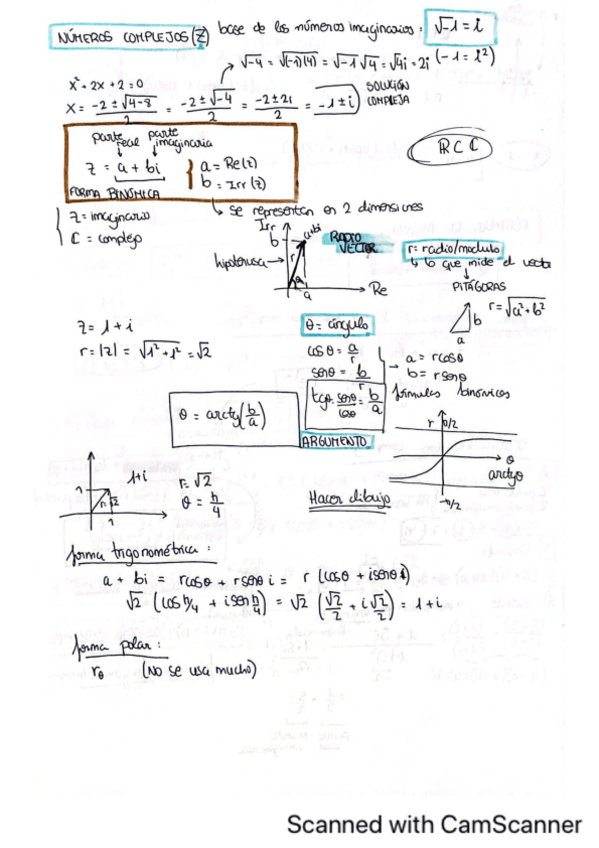 NÚMEROS COMPLEJOS (Z) base de los números imaginarios: √-1 = i
√-4 = √(-1)(4) = √-1 √4 = √4i = 2i (-1 = i²)
x² + 2x + 2 = 0
X = (-2 ± √4-8)/2 = (-2 ± √-4)/2 = (-2 ± 2i)/2 = -1 ± i SOLUCIÓN COMPLEJA
parte real parte imaginaria
z = a + bi { a = Re(z)
b = Im(z)
FORMA BINÓMICA
R ⊂ C
↳ se representan en 2 dimensiones
Z = imaginario
C = complejo
Im
b
a+bi
RADIO VECTOR
hipotenusa →
r
a
Re
r = radio/modulo
↳ lo que mide el vector
PITÁGORAS
r = √a² + b²
b
a
z = 1 + i
r = |z| = √1² + 1² = √2
θ = ángulo
cos θ = a/r
sen θ = b/r
→ a = r cos θ
b = r sen θ
fórmulas binómicas
tg = sen θ/cos θ = b/a
θ = arctg(b/a)
ARGUMENTO
π/2
θ
arctg θ
-π/2
1+i
r = √2
θ = π/4
Hacer dibujo
forma trigonométrica:
a + bi = r cos θ + r sen θ i = r (cos θ + i sen θ)
√2 (cos π/4 + i sen π/4) = √2 (√2/2 + i √2/2) = 1 + i
forma polar:
r_θ (No se usa mucho)
Scanned with CamScanner